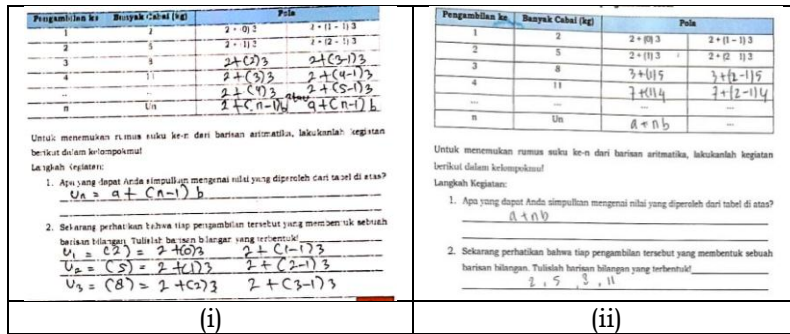 Pengambilan ke Banyak Cabai (kg) Pola
1 2 2 + (0) 3 2 + (1 - 1) 3
2 5 2 + (1) 3 2 + (2 - 1) 3
3 8 2+(2)3 2+(3-1)3
4 11 2+(3)3 2+(4-1)3
... ... 2+(4)3 2+(5-1)3
n Un 2+(n-1)b atau a+(n-1)b
Untuk menemukan rumus suku ke-n dari barisan aritmatika, lakukanlah kegiatan
berikut dalam kelompokmu!
Langkah Kegiatan:
1. Apa yang dapat Anda simpulkan mengenai nilai yang diperoleh dari tabel di atas?
Un = a + (n-1) b
2. Sekarang perhatikan bahwa tiap pengambilan tersebut yang membentuk sebuah
barisan bilangan. Tulislah barisan bilangan yang terbentuk!
U1 = (2) = 2+(0)3 2 + (1-1)3
U2 = (5) = 2+(1)3 2+(2-1)3
U3 = (8) = 2+(2)3 2+(3-1)3
(i)
Pengambilan ke Banyak Cabai (kg) Pola
1 2 2 + (0) 3 2 + (1 - 1) 3
2 5 2 + (1) 3 2 + (2 1) 3
3 8 3+(1)5 3+(2-1)5
4 11 7+(1)4 7+(2-1)4
... ... ... ...
n Un a+nb ...
Untuk menemukan rumus suku ke-n dari barisan aritmatika, lakukanlah kegiatan
berikut dalam kelompokmu!
Langkah Kegiatan:
1. Apa yang dapat Anda simpulkan mengenai nilai yang diperoleh dari tabel di atas?
a+nb
2. Sekarang perhatikan bahwa tiap pengambilan tersebut yang membentuk sebuah
barisan bilangan. Tulislah barisan bilangan yang terbentuk!
2, 5, 8, 11
(ii)